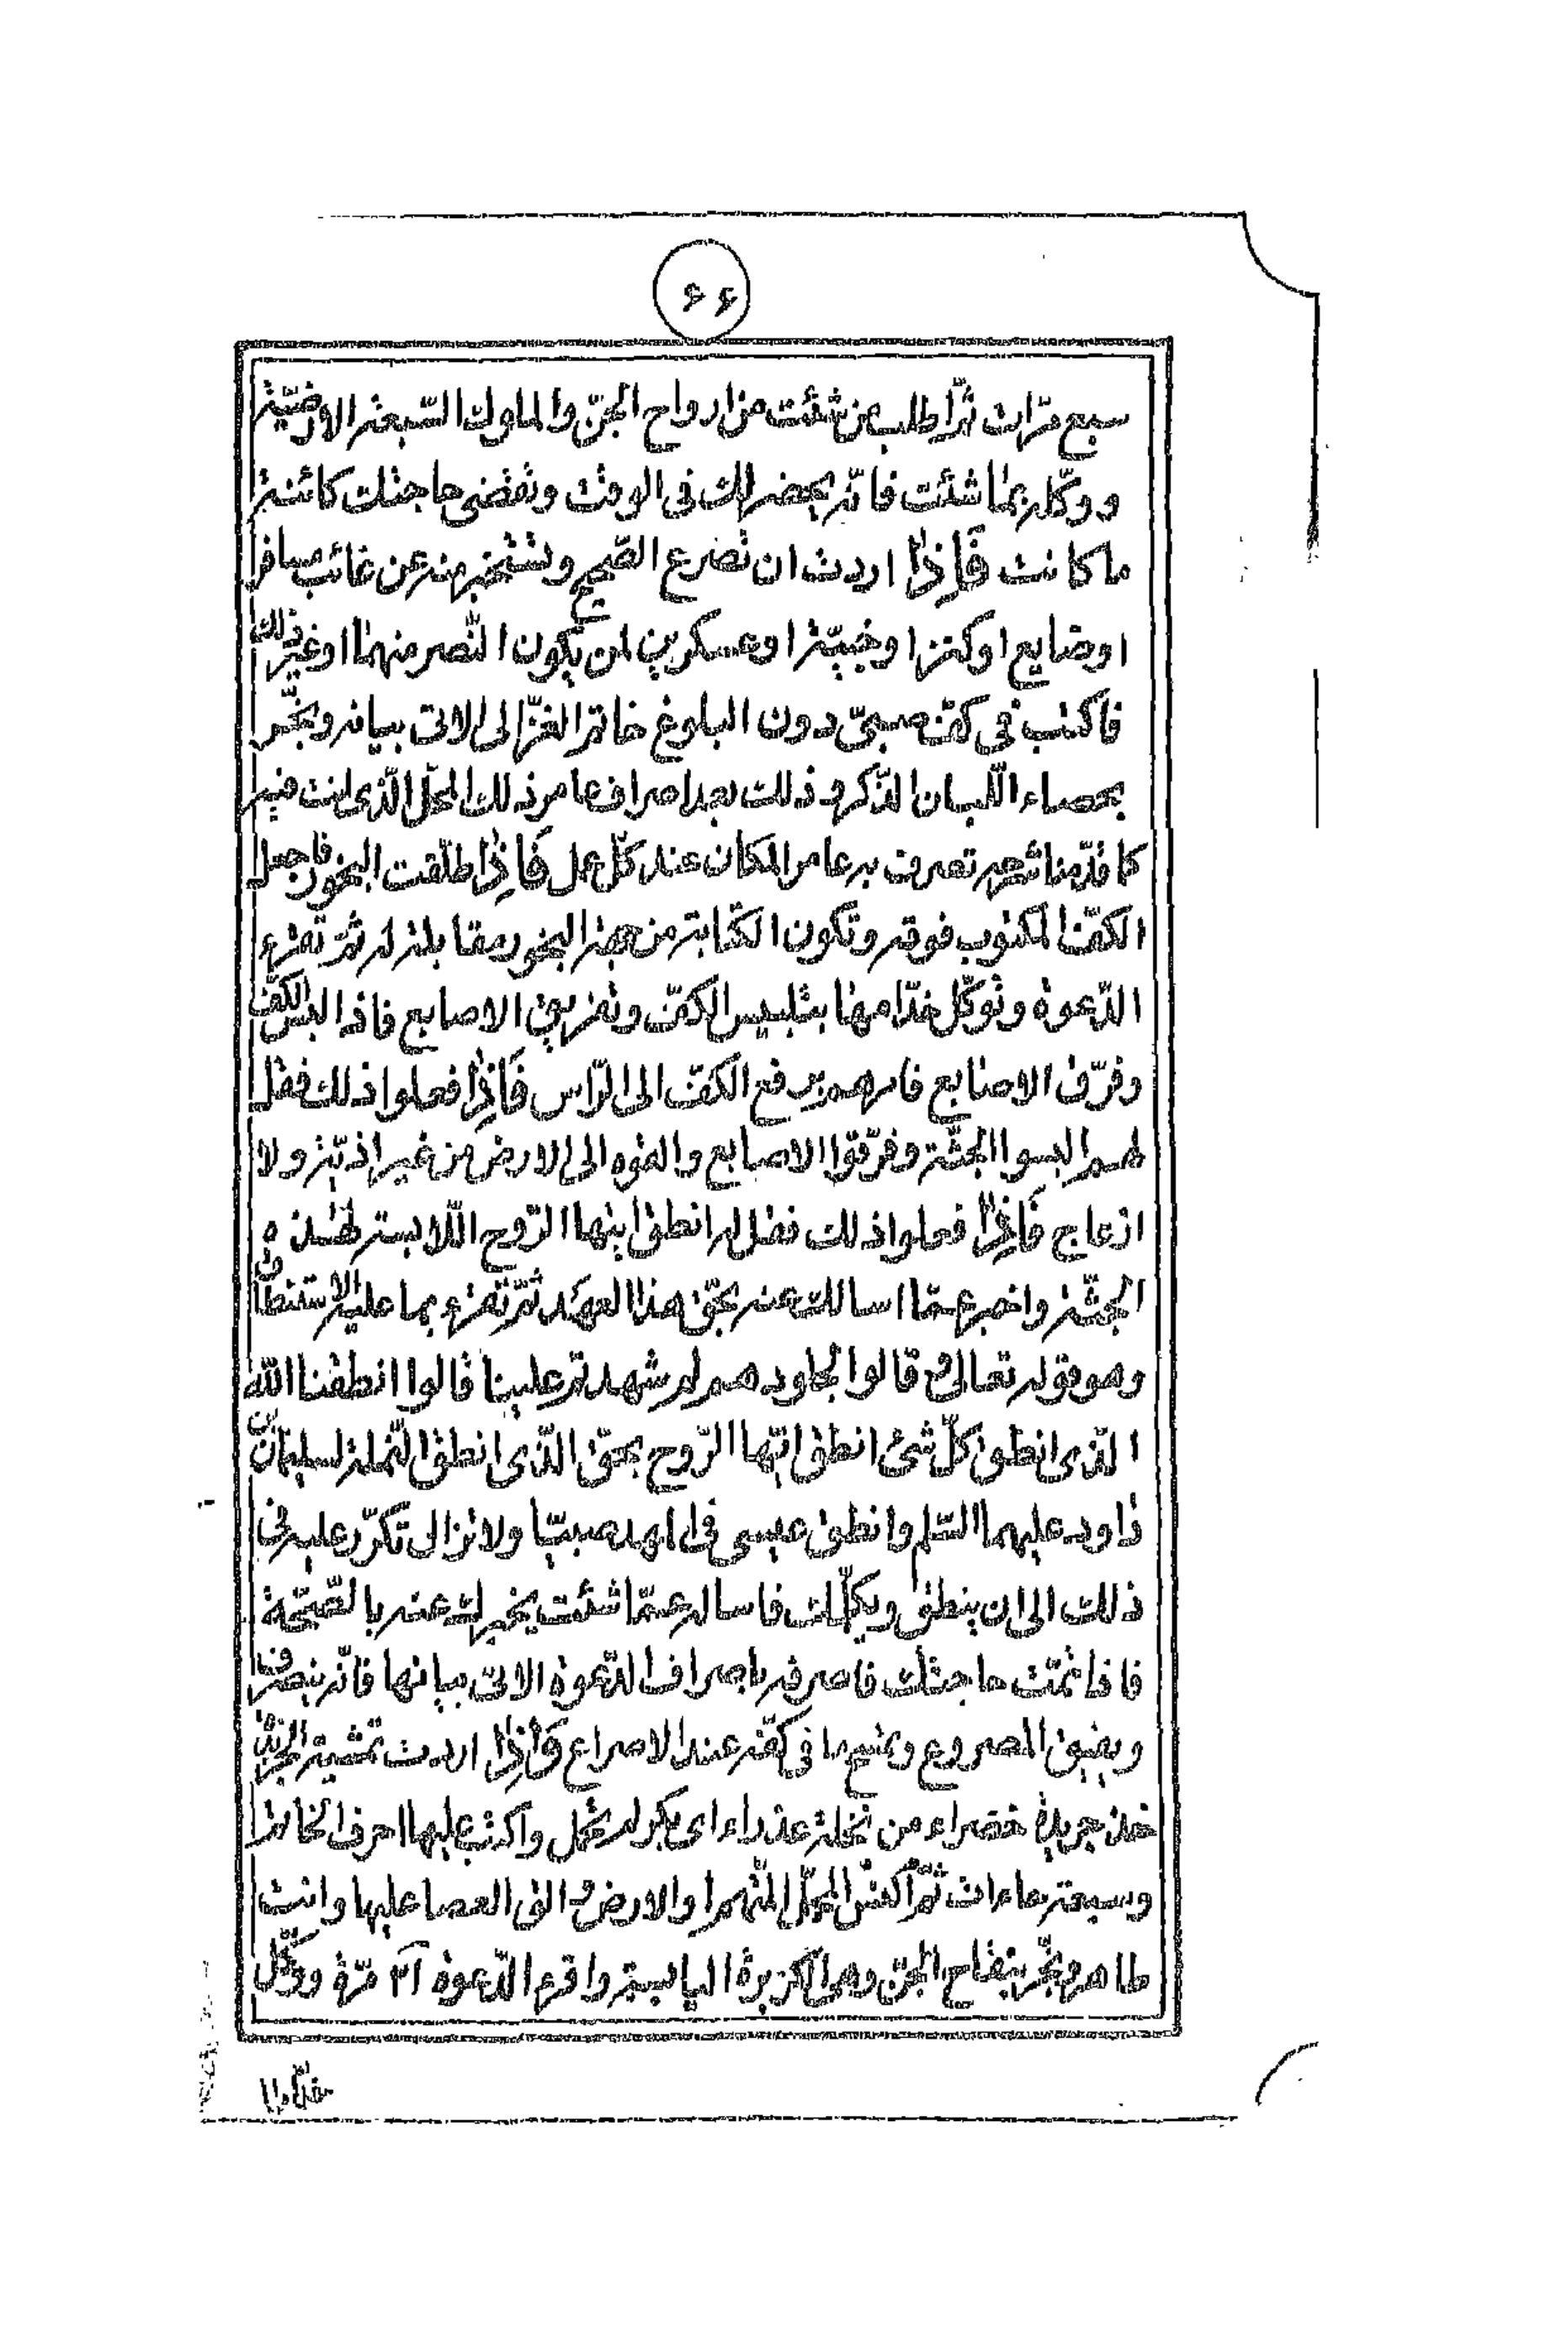 ۶۶
سبع مرّات ثمّ اطلب من شئت من ارواح الجنّ والملوك السّبعة الارضيّة
ووكّله بما شئت فانّه يحضر لك فى الوقت وتقضى حاجتك كائنة
ما كانت فَاِذٰا اردت ان تصرع الصّحيح وتستخبر منه عن غائب مسافر
اوضايع اوكنز اوخبيّة اوعسكرين لمن يكون النّصر منهما اوغير ذلك
فاكتب فى كفّ صبىّ دون البلوغ خاتم الغزّالى الاتى بيانه وبخّر
بحصاء اللّبان الذّكر وذلك بعد اصراف عامر ذلك المحلّ الّذى انت فيه
كما قدّمنا تصرف به عامر المكان عند كلّ عمل فَاِذٰا طلّقت البخور فاجعل
الكفّ المكتوب فوقه وتكون الكتابة من جهة البخور مقابلة له ثمّ تقرء
الدّعوة وتوكّل خدّامها بتلبيس الكفّ وتفريق الاصابع فاذا البس الكفّ
وفرّق الاصابع فامرهم برفع الكفّ الى الرّاس فَاِذٰا فعلوا ذلك فقل
لهم البسوا الجثّة وفرّقوا الاصابع والقوه الى الارض من غير اذيّة ولا
ازعاج فَاِذٰا فعلوا ذلك فقل له انطق ايّها الرّوح اللّابسة لهذه
الجثّة واخبر عمّا اسالك عنه بحقّ هذا العهد ثمّ تقرء بما عليه الاستنطاق
وهو قوله تعالى قالوا لجلودهم لم شهدتم علينا قالوا انطقنا اللّه
الّذى انطق كلّ شئ انطق ايّها الرّوح بحقّ الّذى انطق النّملة لسليمان بن
داود عليهما السّلم وانطق عيسى فى المهد صبيّا ولا تزال تكرّر عليه فى
ذلك الى ان ينطق ويكلّمك فاساله عمّا شئت يخبرك عنه بالصّحّة
فاذا تمّت حاجتك فاصرفه باصراف الدّعوة الاتى بيانها فانّه ينصرف
ويفيق المصروع وتمسح ما فى كفّه عند الاصراع فَاِذٰا اردت تمشية الجريدة
خذ جريدة خضراء من نخلة عذراء اى بكر لم تحمل واكتب عليها احرف الخاتم
وسبعة هاءات ثمّ اكنس المحلّ والارض والق العصا عليها وانت
طاهر وبخّر بتفاح الجنّ وهى الكزبرة اليابسة واقرء الدّعوة ۲۱ مرّة ووكّل